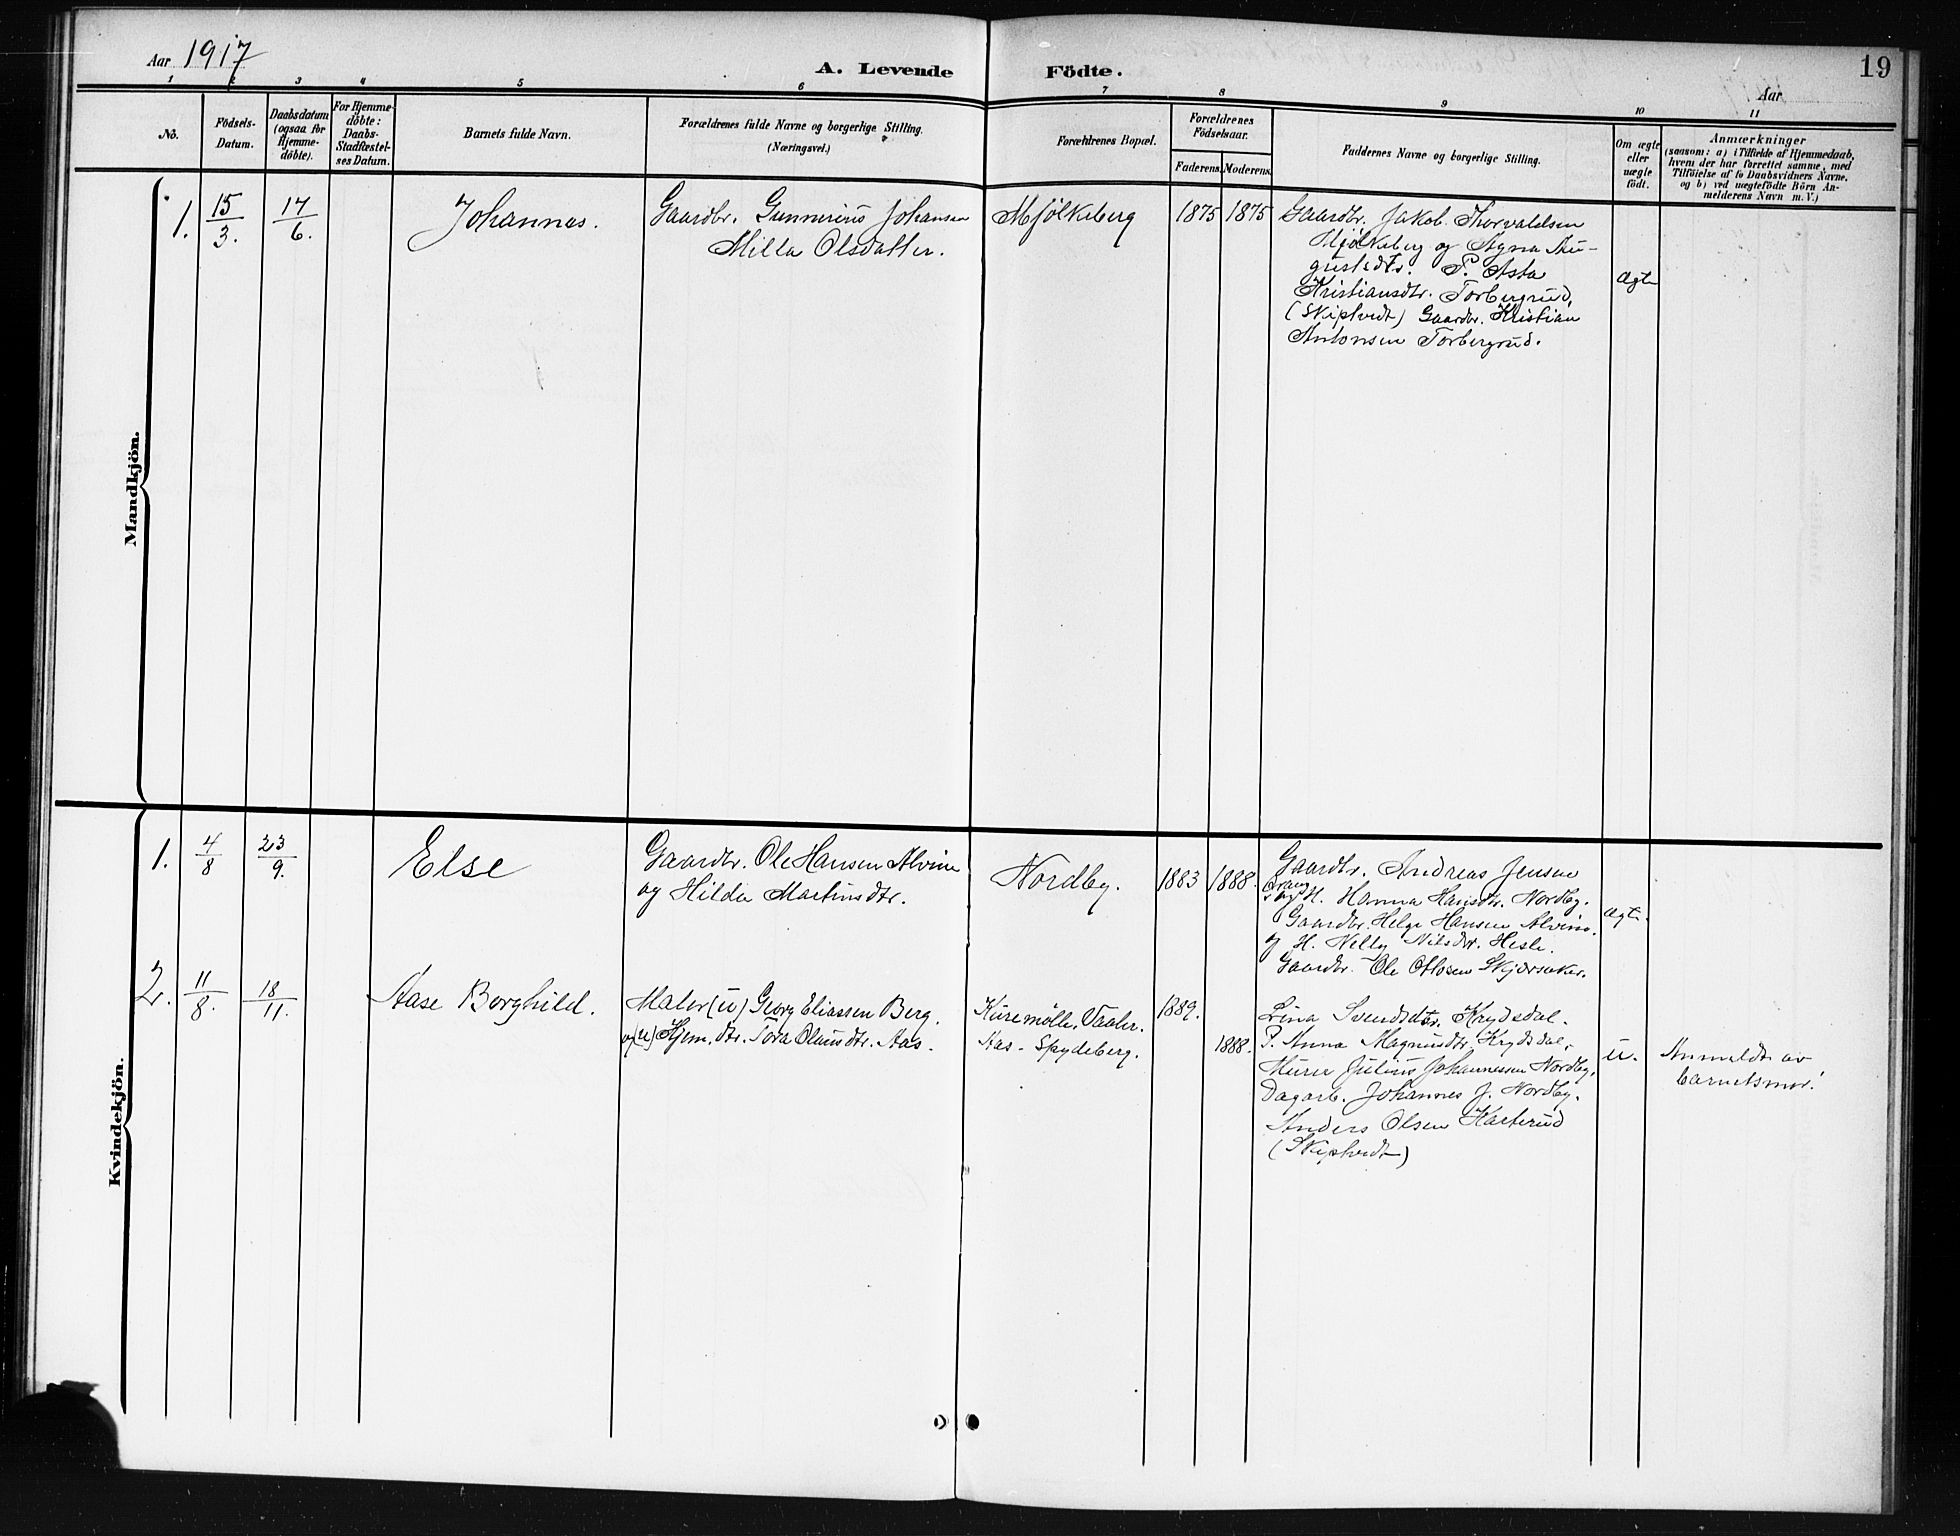 Aar 1917
A. Levende Födte.
19
Aar
1 2 3 4 5 6 7 8 9 10 11
Nò.
Födsels-
Datum.
Daabsdatum
(ogsaa for
Hjemme-
döbte).
For Hjemme-
döbte:
Daabs-
Stadfæstel-
ses Datum.
Barnets fulde Navn.
Forældrenes fulde Navne og borgerlige Stilling.
(Næringsvei.)
Forældrenes Bopæl.
Forældrenes
Födselsaar.
Faderens.
Moderens.
Faddernes Navne og borgerlige Stilling.
Om ægte
eller
uægte
födt.
Anmærkninger
(saasom: a) i Tilfælde af Hjemmedaab,
hvem der har forrettet samme, med
Tilföielse af to Daabsvidners Navne,
og b) ved uægtefödte Börn An-
melderens Navn m. V.)
Mandkjön.
1. 15/3. 17/6. Johannes.
Gaardbr. Gunnerius Johansen
Milla Olsdatter.
Mjølkeberg
1875 1875
Gaardbr. Jakob Thorvaldsen
Mjølkeberg og Agna Au-
gustsdtr. P. Asta
Kristiansdtr. Torbergrud,
(Skiptvedt) Gaardbr. Kristian
Antonsen Torbergrud.
Ægte
Kvindekjön.
1. 4/8 23/9. Else
Gaardbr. Ole Hansen Alvim
og Hilda Martinsdtr.
Nordby.
1883 1888.
Gaardbr. Andreas Jensen
og H. Hanna Hansdtr. Nordby.
Gaardbr. Helge Hansen Alvim.
og H. Nelly Nilsdtr. Hesle.
Gaardbr. Ole Ottosen Skjørsaker.
Ægte.
2. 11/8. 18/11. Aase Borghild.
Maler (u) Georg Eliassen Berg.
og (u) Hjem. dtr. Tora Olausdtr. Aas.
Kuremølle, Vaaler.
Aas - Spydeberg.
1889.
1888.
Lina Svendsdtr. Krydsdal.
P. Anna Magnusdtr. Krydsdal,
Murer Julius Johannessen Nordby.
Dagarb. Johannes J. Nordby.
Anders Olsen Karterud
(Skiptvedt)
u.
Anmeldt av
barnets mor.